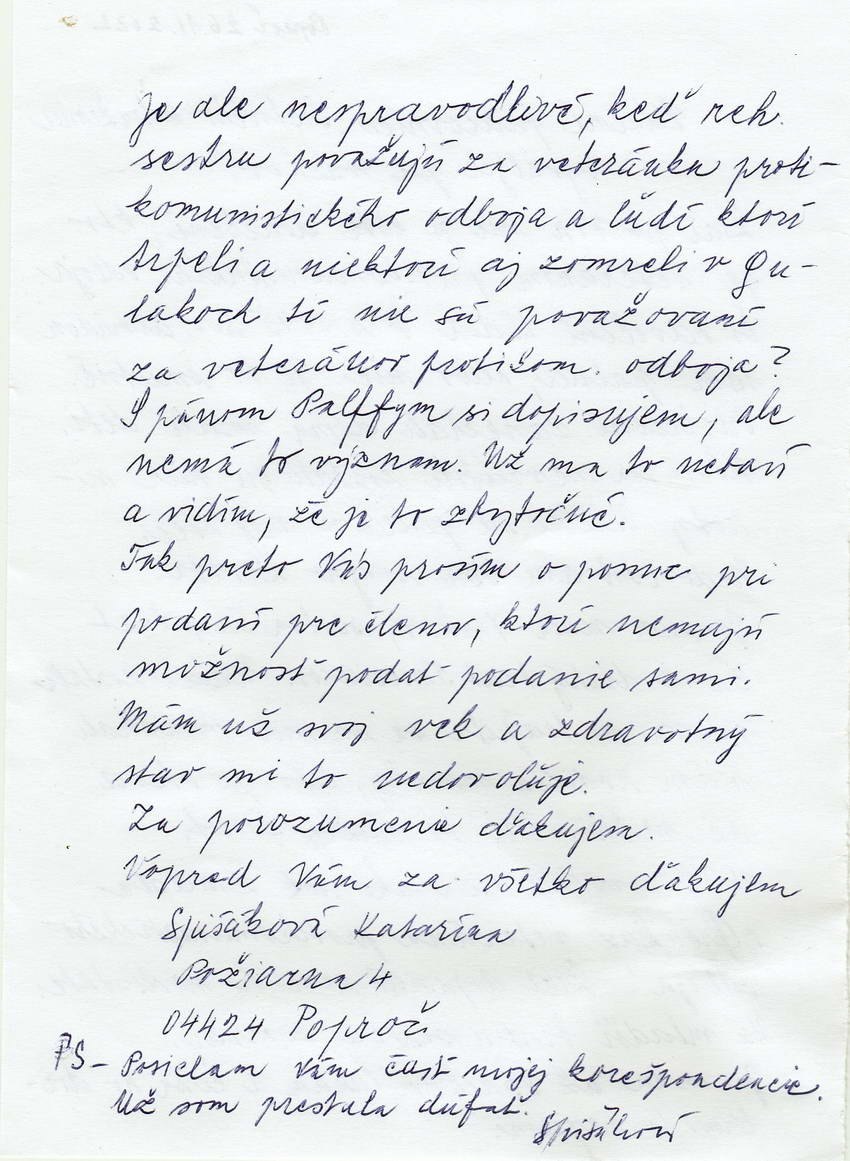 Je ale nespravodlivé, keď reh.
sestru považujú za veteránku proti-
komunistického odboja a ľudí ktorí
trpeli a niektorí aj zomreli v gu-
lakoch tí nie sú považovaní
za veteránov protikom. odboja?
S pánom Palffym si dopisujem, ale
nemá to význam. Už ma to nebaví
a vidím, že je to zbytočné.
Tak preto Vás prosím o pomoc pri
podaní pre členov, ktorí nemajú
možnosť podať podanie sami.
Mám už svoj vek a zdravotný
stav mi to nedovoľuje.
Za porozumenie ďakujem.
Vopred Vám za všetko ďakujem
Spišáková Katarína
Požiarna 4
04424 Poproč
PS - Posielam Vám časť mojej korešpondencie.
Už som prestala dúfať.
Spišáková